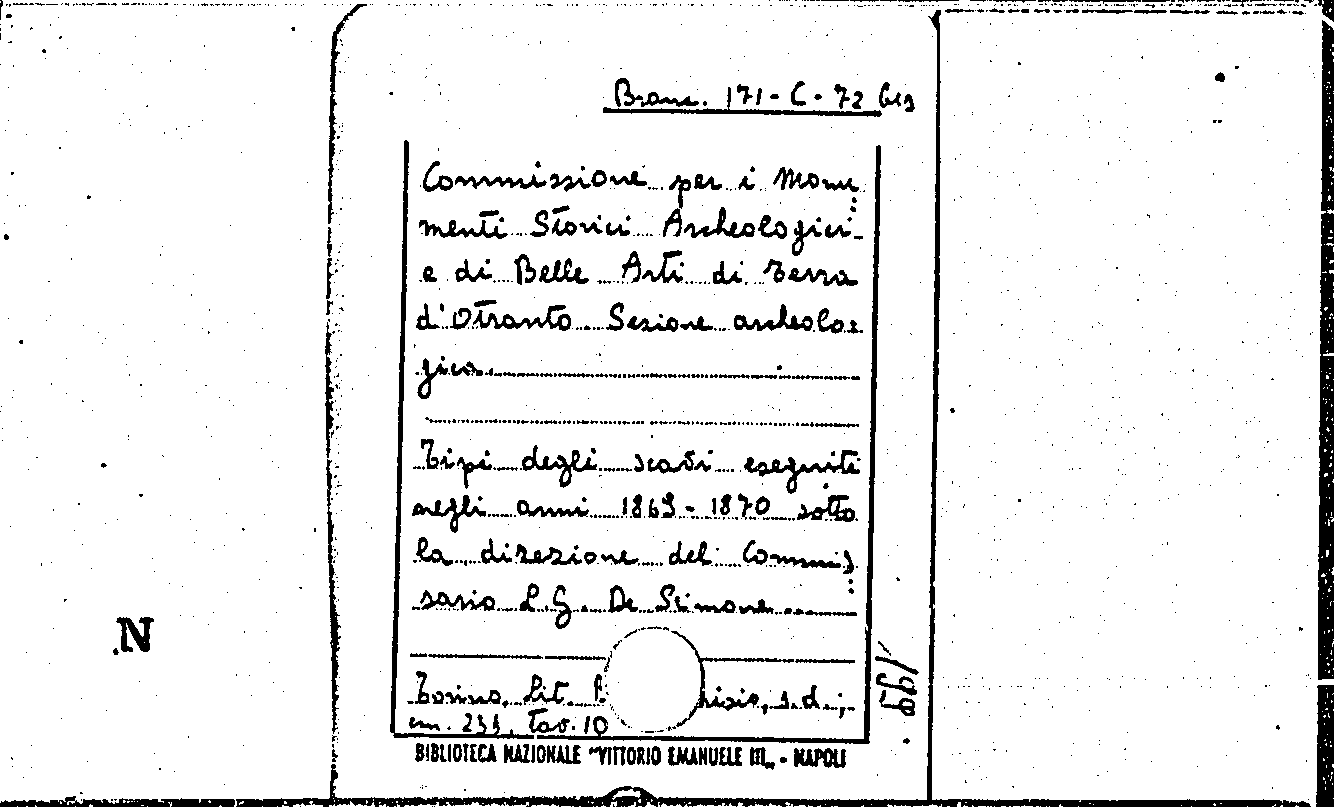 Branc. 171-C-72 bis
Commissione per i Monu
menti Storici Archeologici
e di Belle Arti di Terra
d'Otranto. Sezione archeolo=
gica.
Tipi degli scavi eseguiti
negli anni 1869-1870 sotto
la direzione del Commis
sario L.G. De Simone...
Torino, Lit. s.d.;
cm. 233, Tav. 10
BIBLIOTECA NAZIONALE "VITTORIO EMANUELE III„ - NAPOLI
N